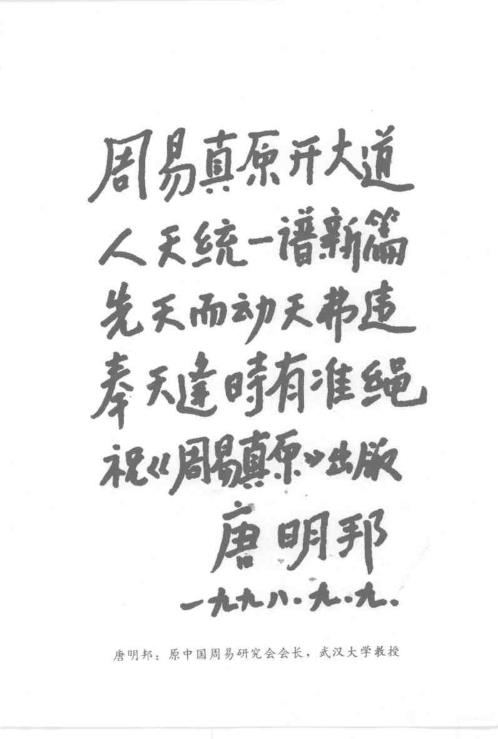 周易真原开大道
人天统一谱新篇
先天而动天弗违
奉天達時有准绳
祝《周易真原》出版
唐明邦
一九九八.九.九.
唐明邦：原中国周易研究会会长，武汉大学教授